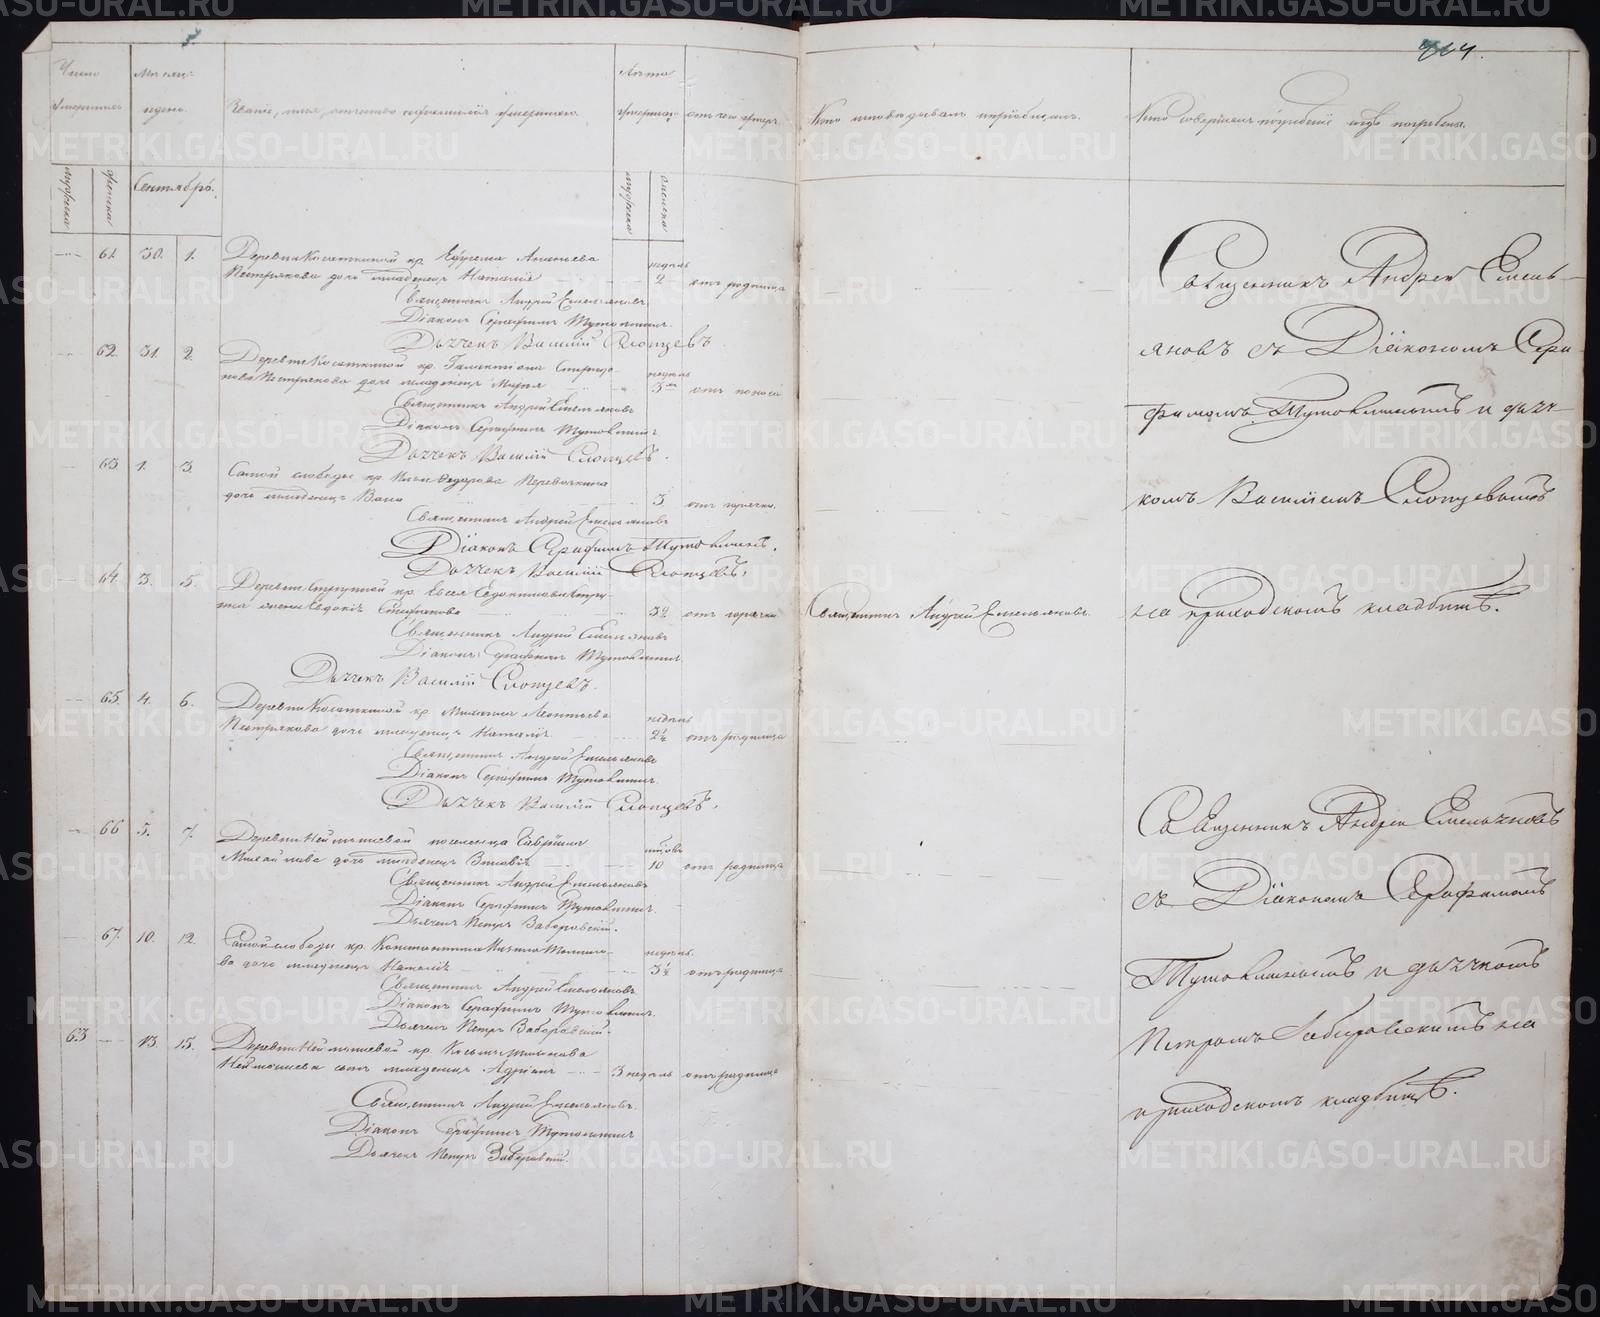 964.
Число
умершихъ
Мѣсяцъ
и день.
Званіе, имя, отчество и фамилія умершаго.
Лѣта
умершаго
отъ чего умеръ.
Кто исповѣдывалъ и пріобщалъ.
Кто совершалъ погребеніе и гдѣ погребены.
мужска
женска
Сентябрь.
мужска
женска
61. 30. 1. Деревни Косаткиной кр. Ефрема
Пестрякова дочь младенецъ Наталія
недѣль
2 отъ родимца
Священникъ Андрей Емельяновъ
Діаконъ Серафимъ Тутолминъ.
Дьячекъ Василій Слопцевъ
62. 31. 2. Деревни Косаткиной кр.
Пестрякова дочь младенецъ Марія
недѣль
3 отъ поноса
Священникъ Андрей Емельяновъ
Діаконъ Серафимъ Тутолминъ
Дьячекъ Василій Слопцевъ.
63. 1. 3. Самой слободы кр. Ильи Федорова
дочь младенецъ
3 отъ горячки.
Священникъ Андрей Емельяновъ
Діаконъ Серафимъ Тутолминъ.
Дьячекъ Василій Слопцевъ.
64. 3. 5. Деревни кр. Евсея Евдокимова
жена Евдокія Стефанова
32 отъ горячки
Священникъ Андрей Емельяновъ
Діаконъ Серафимъ Тутолминъ.
Дьячекъ Василій Слопцевъ.
65. 4. 6. Деревни Косаткиной кр. Леонтьева
Пестрякова дочь младенецъ Наталія
недѣль
2½ отъ родимца
Священникъ Андрей Емельяновъ
Діаконъ Серафимъ Тутолминъ.
Дьячекъ Василій Слопцевъ.
66 5. 7. Деревни поселенца Гавріила
Михайлова дочь младенецъ
10 отъ родимца
Священникъ Андрей Емельяновъ
Діаконъ Серафимъ Тутолминъ.
Дьячекъ Петръ Заборовскій.
67. 10. 12. Самой слободы кр. Константина
дочь младенецъ Наталія
недѣль
3½ отъ родимца
Священникъ Андрей Емельяновъ
Діаконъ Серафимъ Тутолминъ.
Дьячекъ Петръ Заборовскій.
63 13. 15. Деревни кр. Косьмы
сынъ младенецъ Адріанъ 3 недѣль отъ родимца
Священникъ Андрей Емельяновъ.
Діаконъ Серафимъ Тутолминъ
Дьячекъ Петръ Заборовскій.
Священникъ Андрей Емельяновъ.
Священникъ Андрей Емель-
яновъ съ Діакономъ Сера-
фимомъ Тутолминымъ и дьяч-
комъ Василіемъ Слопцевымъ
на приходскомъ кладбищѣ.
Священникъ Андрей Емельяновъ
съ Діакономъ Серафимомъ
Тутолминымъ и дьячкомъ
Петромъ Заборовскимъ на
приходскомъ кладбищѣ.
METRIKI.GASO-URAL.RU